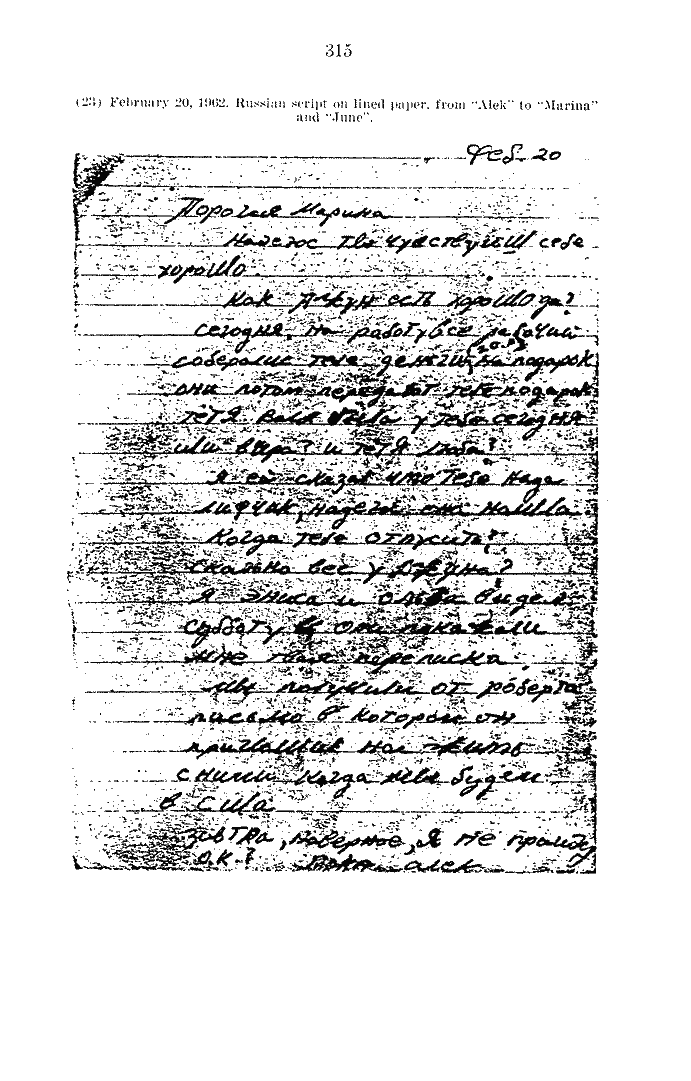 315
(23) February 20, 1962. Russian script on lined paper, from "Alek" to "Marina"
and "June".
Феб. 20
Дорогая Марина
Надеюс ты чувствуешШ себе
хорошо.
Как Джун есть хорошо да?
сегодня, на работу все рабочий
соберолис тебе деньгий, на подарок
они потом передавот тебе подарок
тетя Валя была у тебе сегодня
или вчера? и тетя Люба?
Я ей сказав что тебе нада
лифчик, надеюс она нашла.
Когда тебе отпусить?
сколько вес у Джуна?
Я Эника и Ольга видел
субботу они показали
мне твая переписка.
мы получили от роберта
письмо в котором он
приглашив нас жить
с ними когда мы будем
в США
завтра, наверное, я не прийду
О.К.? Пока алек